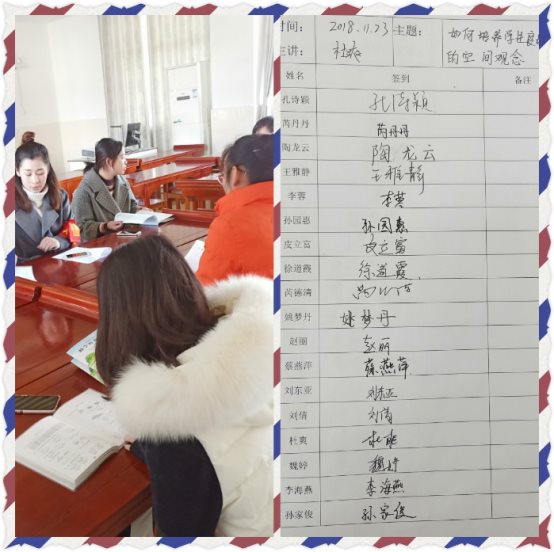 时间: 2018.11.23 主题: 如何培养学生良好
主讲: 杜爽 的空间观念
姓名 签到 备注
孔诗颖 孔诗颖
芮丹丹 芮丹丹
陶龙云 陶龙云
王雅静 王雅静
李蓉
孙园惠 孙园惠
皮立富 皮立富
徐道霞 徐道霞
芮德清
姚梦丹 姚梦丹
赵丽 赵丽
蔡燕萍 蔡燕萍
刘东亚
刘倩 刘倩
杜爽 杜爽
魏婷 魏婷
李海燕 李海燕
孙家俊 孙家俊